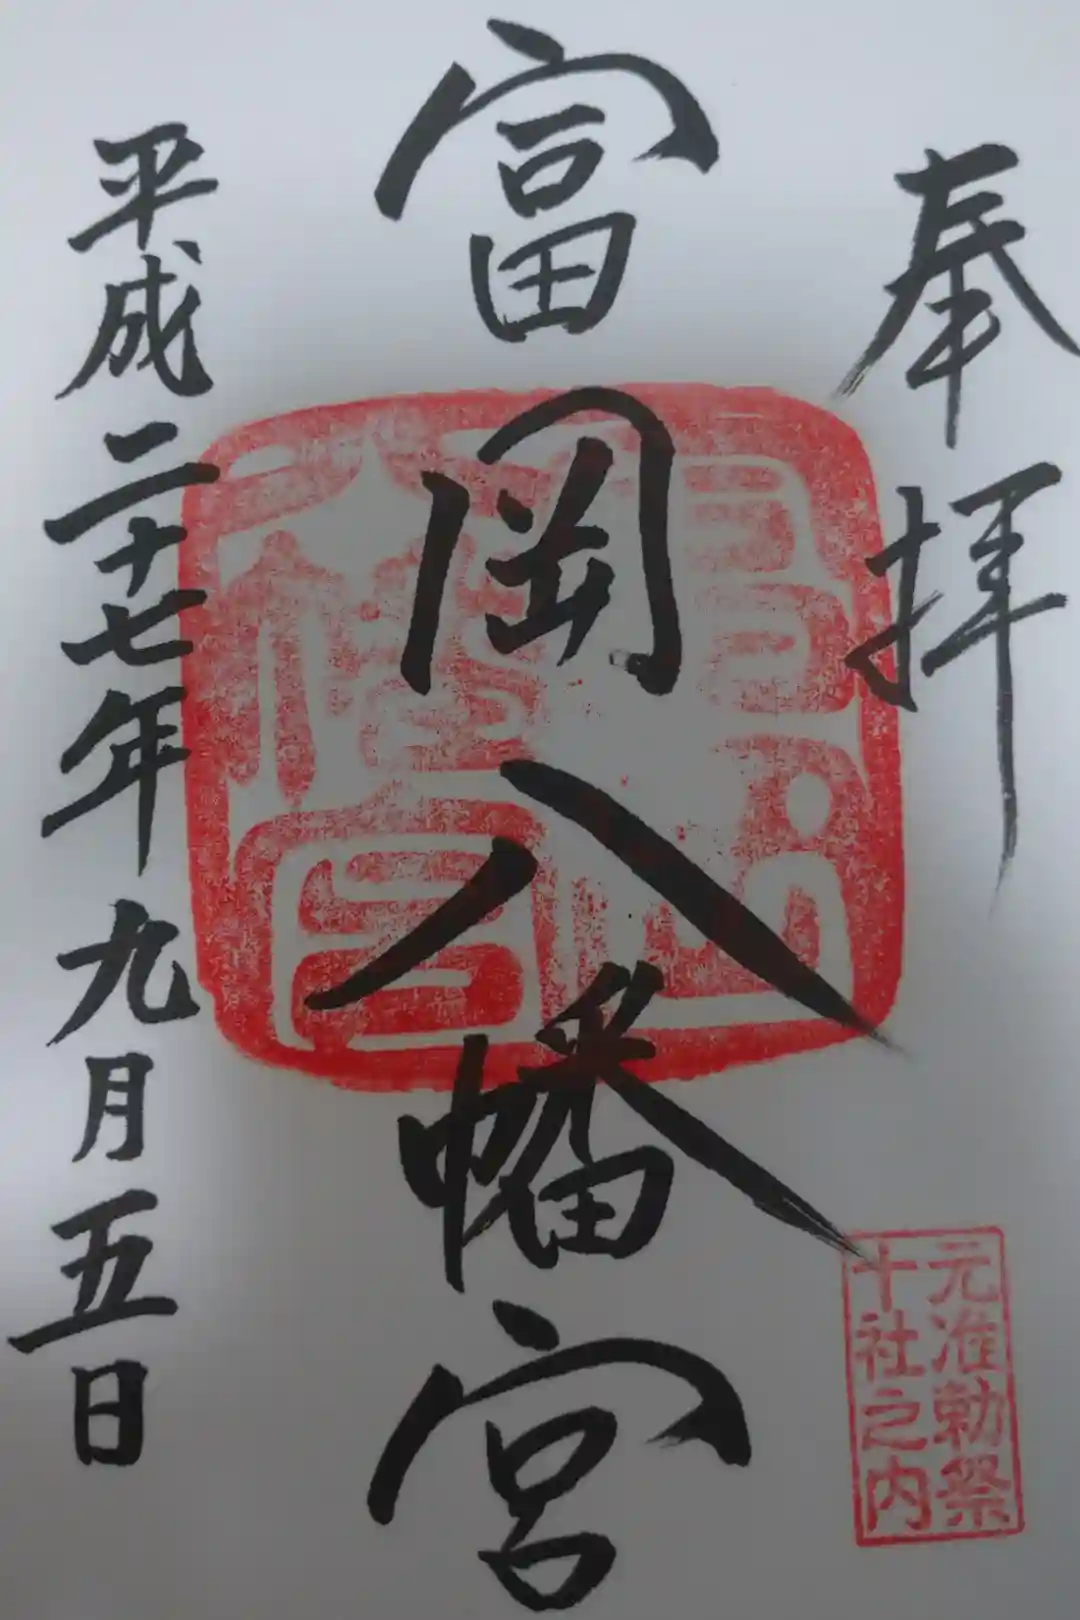 奉拝
富岡八幡宮
平成二十七年九月五日
元准勅祭
十社之内